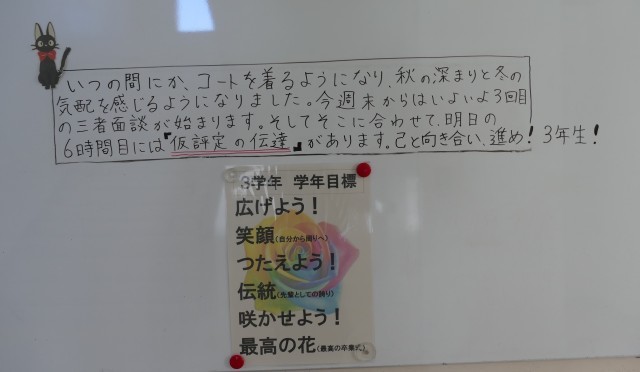 いつの間にか、コートを着るようになり、秋の深まりと冬の
気配を感じるようになりました。今週末からはいよいよ3回目
の三者面談が始まります。そしてそこに合わせて、明日の
6時間目には『仮評定の伝達』があります。己と向き合い、進め!3年生!
3学年 学年目標
広げよう!
笑顔(自分から周りへ)
つたえよう!
伝統(先輩としての誇り)
咲かせよう!
最高の花(最高の卒業式)